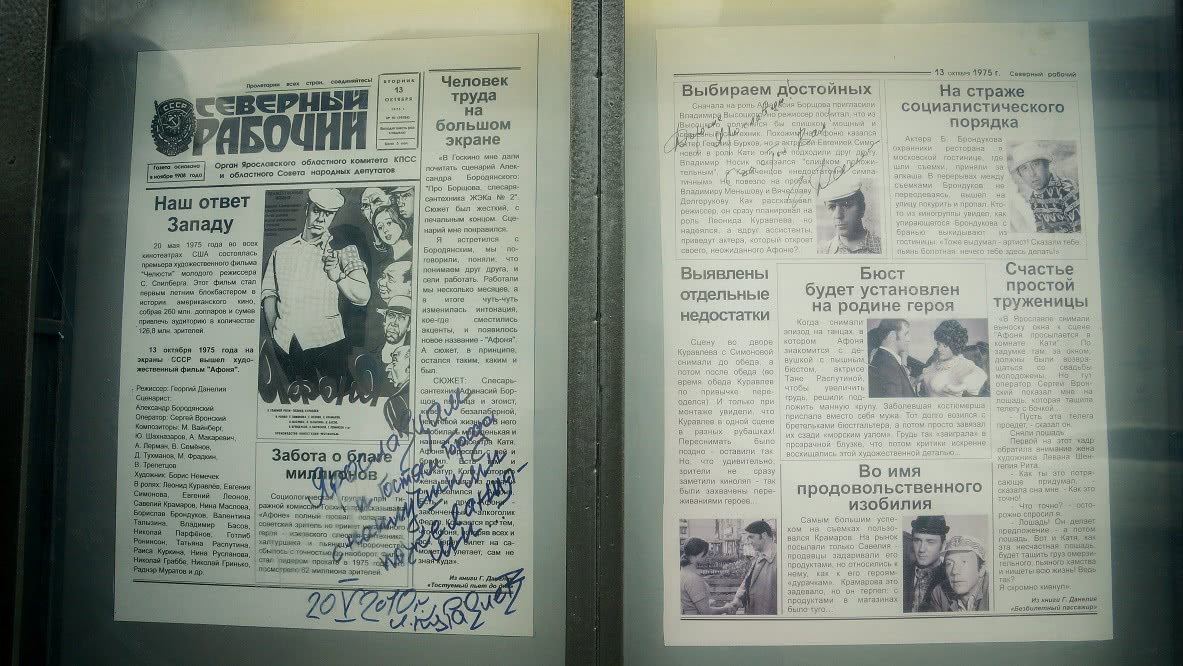 Пролетарии всех стран, соединяйтесь!
СССР
СЕВЕРНЫЙ
РАБОЧИЙ
ВТОРНИК
13
ОКТЯБРЯ
Газета основана
в ноябре 1908 года
Орган Ярославского областного комитета КПСС
и областного Совета народных депутатов
Наш ответ
Западу
20 мая 1975 года во всех
кинотеатрах США состоялась
премьера художественного фильма
"Челюсти" молодого режиссера
С. Спилберга. Этот фильм стал
первым летним блокбастером в
истории американского кино,
собрав 260 млн. долларов и сумев
привлечь аудиторию в количестве
126,8 млн. зрителей.
13 октября 1975 года на
экраны СССР вышел худо-
жественный фильм "Афоня".
Режиссер: Георгий Данелия
Сценарист:
Александр Бородянский
Оператор: Сергей Вронский
Композиторы: М. Вайнберг,
Ю. Шахназаров, А. Макаревич,
А. Лерман, В. Семёнов,
Д. Тухманов, М. Фрадкин,
В. Трепетцов
Художник: Борис Немечек
В ролях: Леонид Куравлёв, Евгения
Симонова, Евгений Леонов,
Савелий Крамаров, Нина Маслова,
Борислав Брондуков, Валентина
Талызина, Владимир Басов,
Николай Парфёнов, Готлиб
Ронинсон, Татьяна Распутина,
Раиса Куркина, Нина Русланова,
Николай Граббе, Николай Гринько,
Раднэр Муратов и др.
Афоня
Забота о благе
миллионов
Социологическая
"Афоне" полный провал
советский зритель не примет
героя - жэковского слесаря,
халтурщика и пьяницу. Пророчество
сбылось с точностью до наоборот: фильм
стал лидером проката в 1975 году,
посмотрело 62 миллиона зрителей.
Человек
труда
на
большом
экране
«В Госкино мне дали
почитать сценарий Алек-
сандра Бородянского:
"Про Борщова, слесаря-
сантехника ЖЭКа № 2".
Сюжет был жесткий, с
печальным концом. Сце-
нарий мне понравился.
Я встретился с
Бородянским, мы по-
говорили, поняли, что
понимаем друг друга, и
сели работать. Работали
мы несколько месяцев, а
в итоге чуть-чуть
изменилась интонация,
кое-где сместились
акценты, и появилось
новое название - "Афоня".
А сюжет, в принципе,
остался таким, каким и
был.
СЮЖЕТ: Слесарь-
сантехник Афанасий Бор-
щов, пьяница и эгоист,
Из книги Г. Данелия
«Тостуемый пьет до дна»
Ярославцам
и гостям города
с наилучшими
20 V 2010 г.
13 ОКТЯБРЯ 1975 г. Северный рабочий
Выбираем достойных
Сначала на роль Афанасия Борщова пригласили
Владимира Высоцкого, но режиссер посчитал, что из
Владимир Носик показался "слишком положи-
тельным",
Владимиру Меньшову и Вячеславу
Долгорукову. Как рассказывал
режиссер, он сразу планировал на
роль Леонида Куравлева, но
надеялся, а вдруг ассистенты,
приведут актера, который откроет
своего, неожиданного Афоню?
На страже
социалистического
порядка
Актера Б. Брондукова
охранники ресторана в
московской гостинице, где
шли съемки, приняли за
алкаша. В перерывах между
съемками Брондуков не
переодеваясь, вышел на
улицу покурить и пропал. Кто-
то из киногруппы увидел, как
упирающегося Брондукова с
бранью выкидывают из
гостиницы: «Тоже выдумал - артист! Сказали тебе,
пьянь болотная, нечего тебе здесь делать!»
Выявлены
отдельные
недостатки
Сцену во дворе
Куравлева с Симоновой
снимали до обеда, а
потом после обеда (во
время обеда Куравлев
по привычке пере-
оделся). И только при
монтаже увидели, что
Куравлев в одной сцене
в разных рубашках!
Переснимать было
поздно - оставили так.
Но, что удивительно,
зрители не сразу
заметили киноляп - так
были захвачены пере-
живаниями героев.
Бюст
будет установлен
на родине героя
Когда снимали
эпизод на танцах, в
котором Афоня
знакомится с де-
вушкой с пышным,
бюстом, актрисе
Тане Распутиной,
чтобы увеличить
грудь, решили под-
ложить манную крупу. Заболевшая костюмерша
прислала вместо себя мужа. Тот долго возился с
бретельками бюстгальтера, а потом просто завязал
их сзади «морским узлом». Грудь так «закрала» в
прозрачной блузке, что потом критики искренне
восхищались этой художественной деталью...
Во имя
продовольственного
изобилия
Самым большим успе-
хом на съемках пользо-
вался Крамаров. На рынок
посылали только Савелия -
продавцы задаривали его
продуктами, но относились
к нему, как к его героям-
«дурачкам». Крамарова это
задевало, но он терпел: с
продуктами в магазинах
было туго...
Счастье
простой
труженицы
«В Ярославле снимали
выноску окна к сцене
"Афоня просыпается в
комнате Кати". По
задумке там, за окном,
должны были возвра-
щаться со свадьбы
молодожены. Но тут
оператор Сергей Врон-
ский показал мне на
лошадь, которая тащила
телегу с бочкой...
- Пусть эта телега
проедет - сказал он.
Сняли лошадь.
Первой на этот кадр
обратила внимание жена
художника Левана Шен-
гелия Рита.
- Как ты это потря-
сающе придумал, -
сказала она мне. - Как это
точно!
- Что точно? - осто-
рожно спросил я.
- Лошадь! Он делает
предложение - а потом
лошадь. Вот и Катя, как
эта несчастная лошадь,
будет тащить груз омерзи-
тельного, пьяного хамства
и нищеты всю жизнь! Ведь
так?
Я скромно кивнул».
Из книги Г. Данелия
«Безбилетный пассажир»